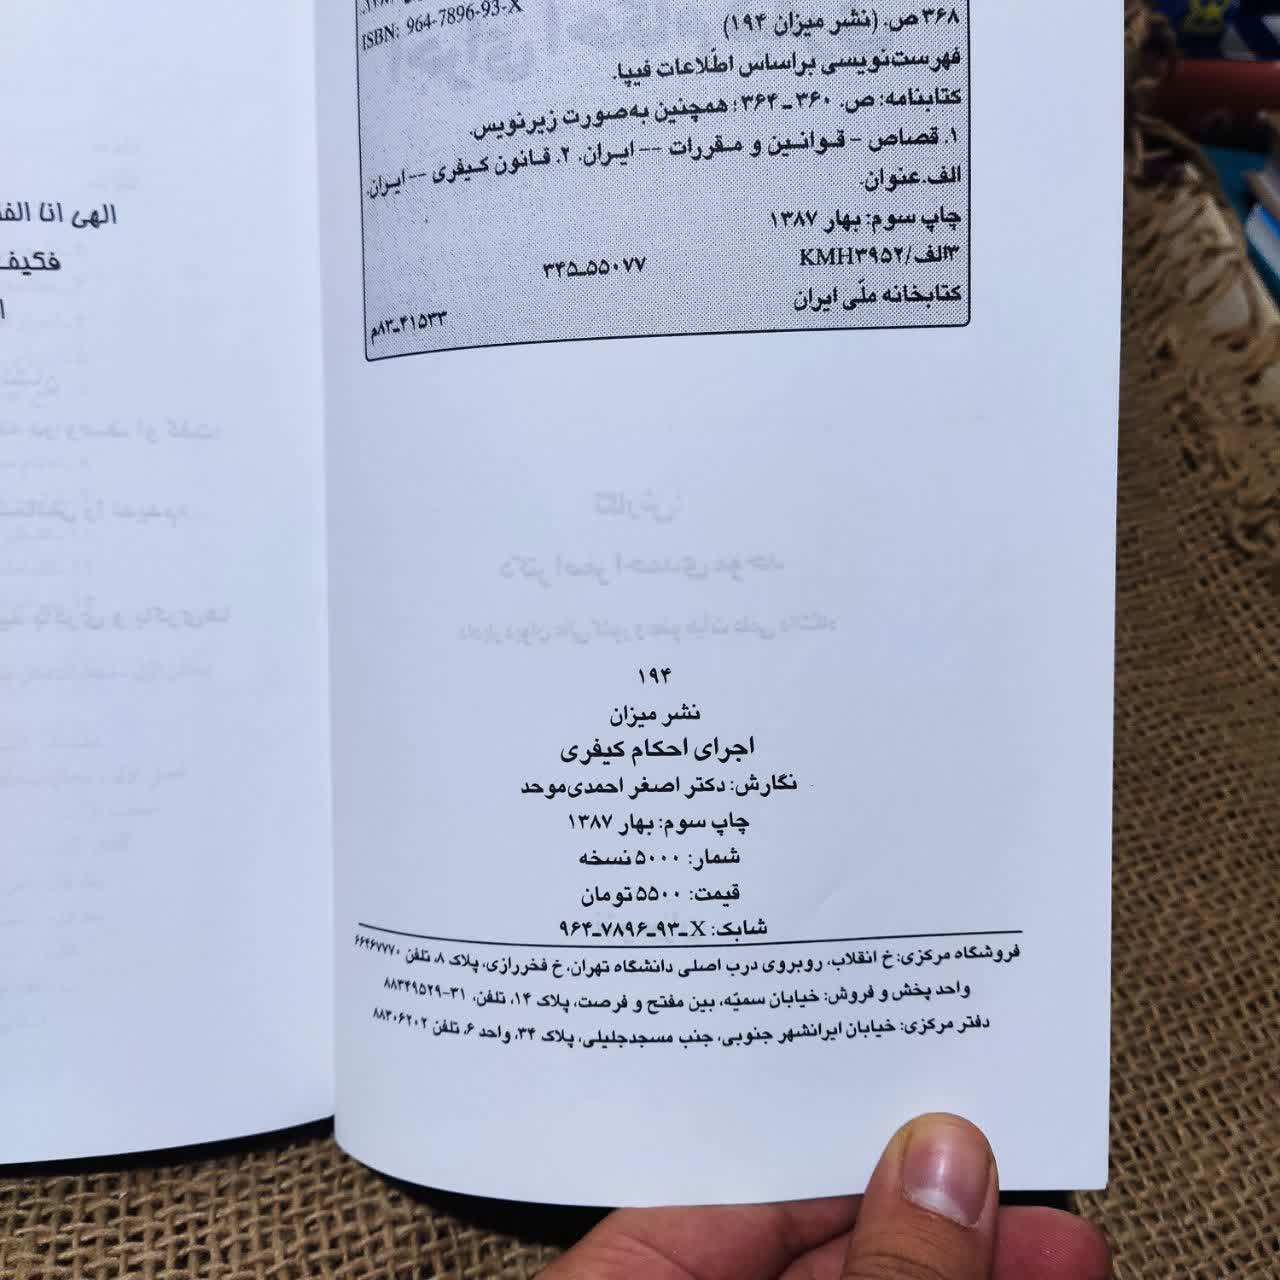 ISBN: 964-7896-93-X
۳۶۸ ص. (نشر میزان ۱۹۴)
فهرست‌نویسی براساس اطّلاعات فیپا.
کتابنامه: ص. ۳۶۰ ـ ۳۶۴؛ همچنین به‌صورت زیرنویس.
۱. قصاص - قوانین و مقررات -- ایران. ۲. قانون کیفری -- ایران.
الف.عنوان.
چاپ سوم: بهار ۱۳۸۷
۳الف/KMH۳۹۵۲ ۳۴۵ـ۵۵۰۷۷
کتابخانه ملّی ایران ۸۳ـ۴۱۵۳۳م
۱۹۴
نشر میزان
اجرای احکام کیفری
نگارش: دکتر اصغر احمدی‌موحد
چاپ سوم: بهار ۱۳۸۷
شمار: ۵۰۰۰ نسخه
قیمت: ۵۵۰۰ تومان
شابک: X ـ۹۳ـ۷۸۹۶ـ۹۶۴
فروشگاه مرکزی: خ انقلاب، روبروی درب اصلی دانشگاه تهران، خ فخررازی، پلاک ۸، تلفن ۶۶۴۶۷۷۷۰
واحد پخش و فروش: خیابان سمیّه، بین مفتح و فرصت، پلاک ۱۴، تلفن، ۳۱-۸۸۳۴۹۵۲۹
دفتر مرکزی: خیابان ایرانشهر جنوبی، جنب مسجدجلیلی، پلاک ۳۴، واحد ۶، تلفن ۸۸۳۰۶۲۰۲
الهی انا
فکیف